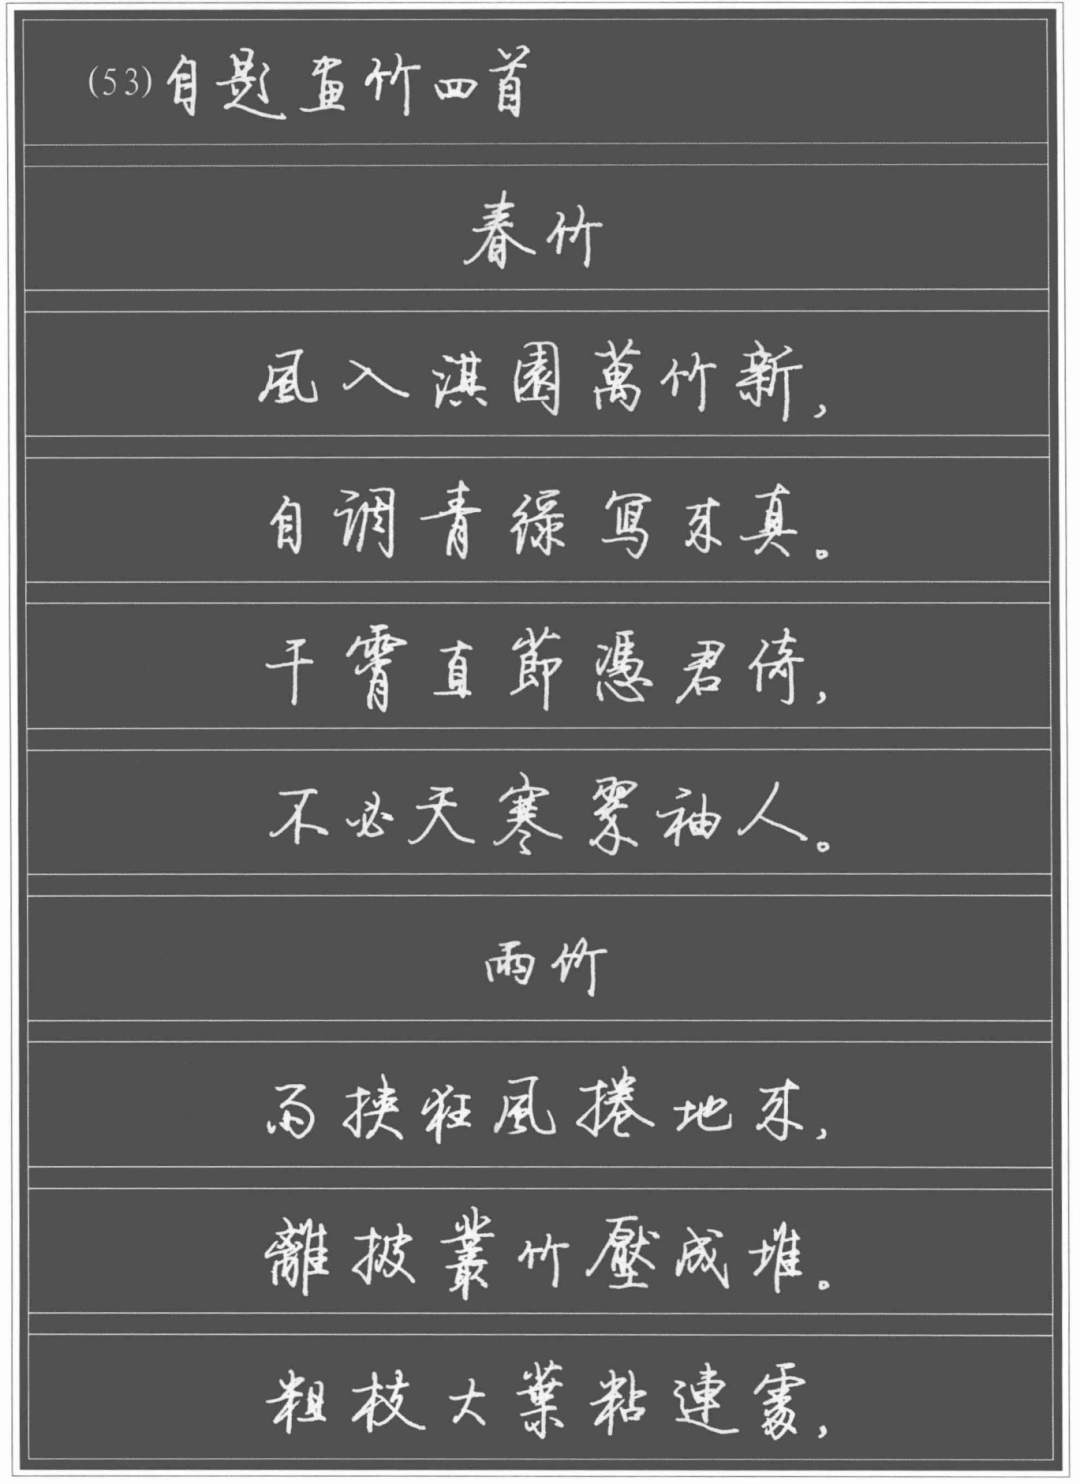 (53)自題畫竹四首
春竹
風入淇園萬竹新，
自調青綠寫來真。
干霄直節憑君倚，
不必天寒翠袖人。
雨竹
雨挾狂風捲地來，
離披叢竹壓成堆。
粗枝大葉粘連處，